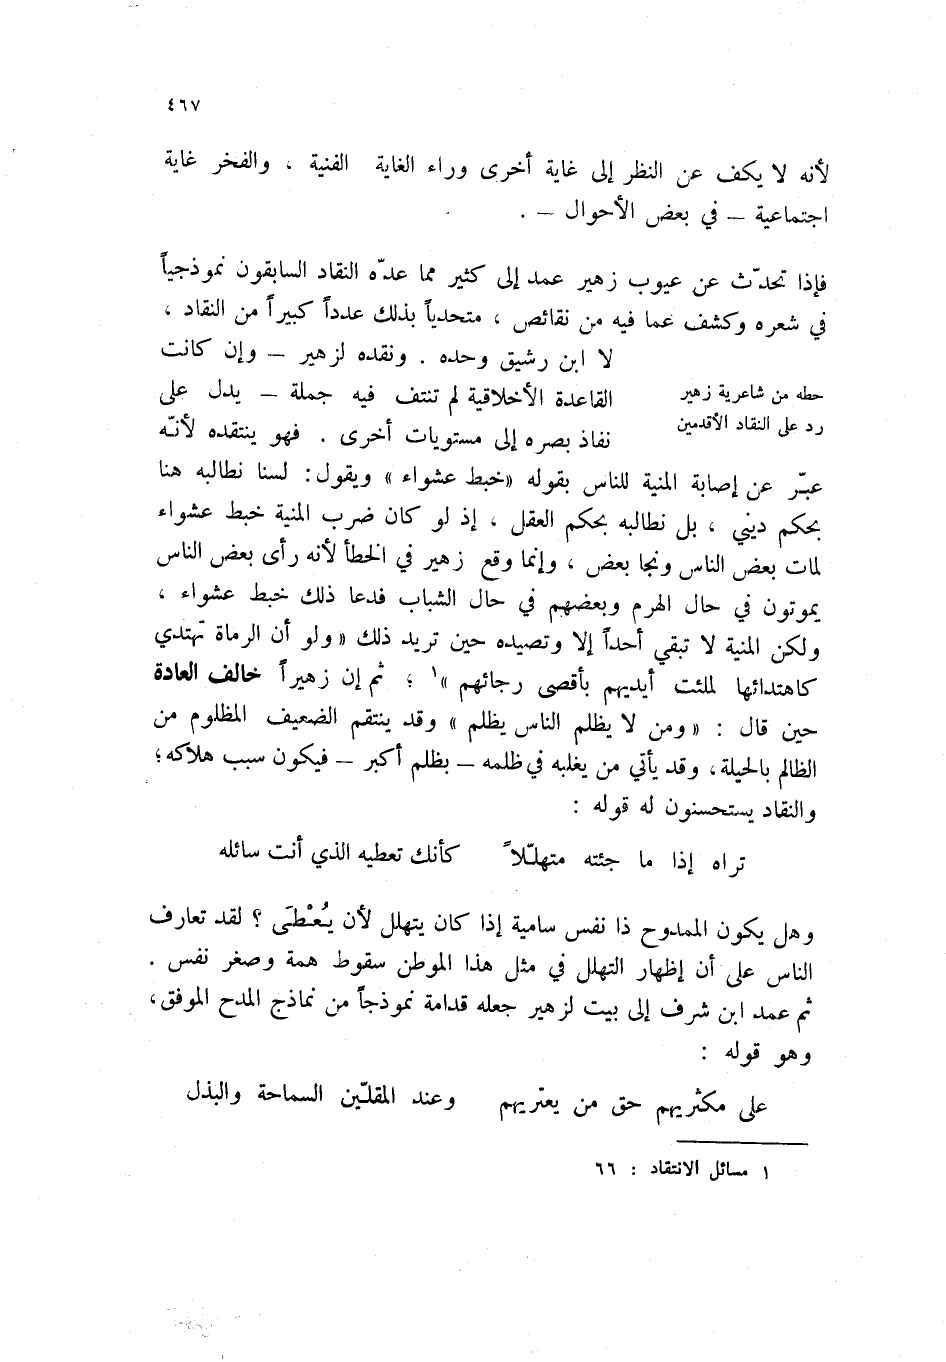 ٤٦٧
لأنه لا يكف عن النظر إلى غاية أخرى وراء الغاية الفنية ، والفخر غاية
اجتماعية – في بعض الأحوال – .
فإذا تحدّث عن عيوب زهير عمد إلى كثير مما عدّه النقاد السابقون نموذجياً
في شعره وكشف عما فيه من نقائص ، متحدياً بذلك عدداً كبيراً من النقاد ،
لا ابن رشيق وحده . ونقده لزهير – وإن كانت
حطه من شاعرية زهير
رد على النقاد الأقدمين
القاعدة الأخلاقية لم تنتف فيه جملة – يدل على
نفاذ بصره إلى مستويات أخرى . فهو ينتقده لأنّه
عبّر عن إصابة المنية للناس بقوله «خبط عشواء » ويقول: لسنا نطالبه هنا
بحكم ديني ، بل نطالبه بحكم العقل ، إذ لو كان ضرب المنية خبط عشواء
لمات بعض الناس ونجا بعض ، وإنما وقع زهير في الخطأ لأنه رأى بعض الناس
يموتون في حال الهرم وبعضهم في حال الشباب فدعا ذلك خبط عشواء ،
ولكن المنية لا تبقي أحداً إلا وتصيده حين تريد ذلك « ولو أن الرماة تهتدي
كاهتدائها لملئت أيديهم بأقصى رجائهم »١ ؛ ثم إن زهيراً خالف العادة
حين قال : « ومن لا يظلم الناس يظلم » وقد ينتقم الضعيف المظلوم من
الظالم بالحيلة، وقد يأتي من يغلبه في ظلمه – بظلم أكبر – فيكون سبب هلاكه؛
والنقاد يستحسنون له قوله :
تراه إذا ما جئته متهلّلاً كأنك تعطيه الذي أنت سائله
وهل يكون الممدوح ذا نفس سامية إذا كان يتهلل لأن يُعْطَى ؟ لقد تعارف
الناس على أن إظهار التهلل في مثل هذا الموطن سقوط همة وصغر نفس .
ثم عمد ابن شرف إلى بيت لزهير جعله قدامة نموذجاً من نماذج المدح الموفق،
وهو قوله :
على مكثريهم حق من يعتريهم وعند المقلّين السماحة والبذل
١ مسائل الانتقاد : ٦٦